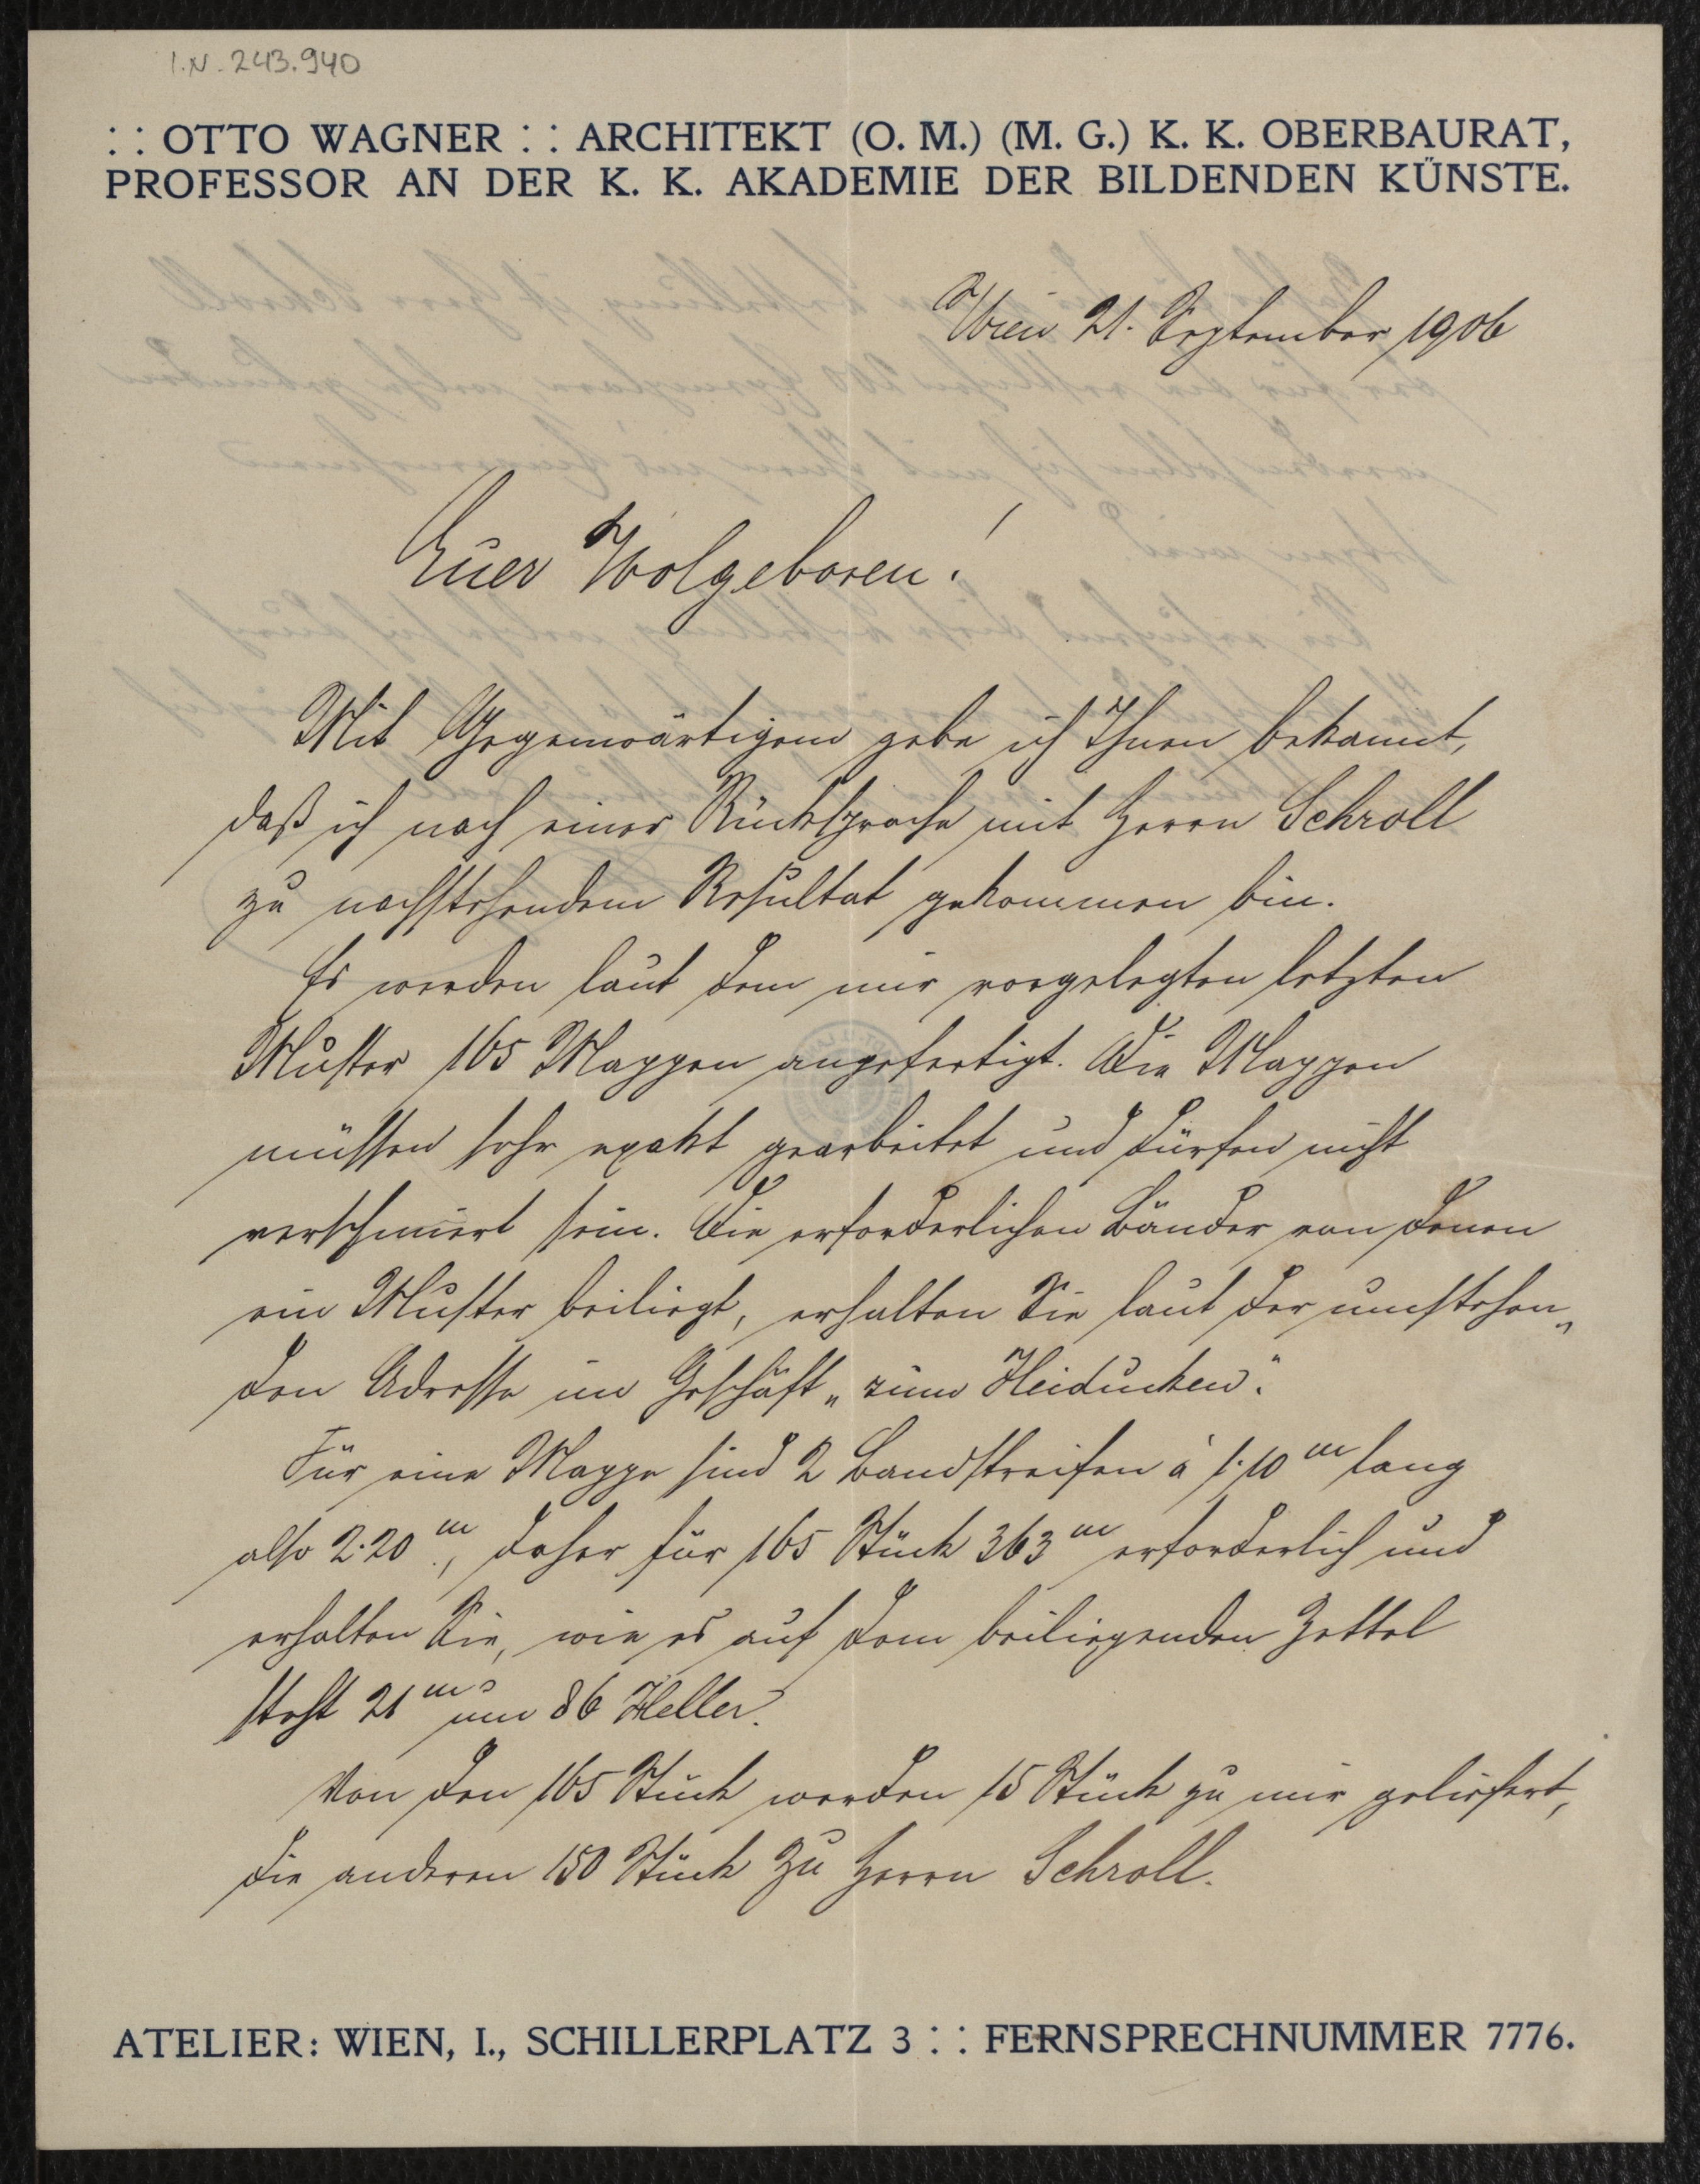 I.N. 243.940
: : OTTO WAGNER : : ARCHITEKT (O. M.) (M. G.) K. K. OBERBAURAT,
PROFESSOR AN DER K. K. AKADEMIE DER BILDENDEN KÜNSTE.
Wien 21. September 1906
Euer Wolgeboren!
Mit Gegenwärtigem gebe ich Ihnen bekannt,
daß ich nach einer Rücksprache mit Herrn Schroll
zu nachstehendem Resultat gekommen bin.
Es werden laut dem mir vorgelegten letzten
Muster 165 Mappen angefertigt. Die Mappen
müssen sehr exakt gearbeitet und dürfen nicht
verschmiert sein. Die erforderlichen Bänder von denen
ein Muster beiliegt, erhalten Sie laut der umstehen„
den Adresse im Geschäft „zum Heiducken".
Für eine Mappe sind 2 Bandstreifen à 1·10 m lang
also 2·20 m, daher für 165 Stück 363 m erforderlich und
erhalten Sie, wie es auf dem beiliegenden Zettel
steht 21 m um 86 Heller.
Von den 165 Stück werden 15 Stück zu mir geliefert,
die anderen 150 Stück zu Herrn Schroll.
ATELIER: WIEN, I., SCHILLERPLATZ 3 : : FERNSPRECHNUMMER 7776.